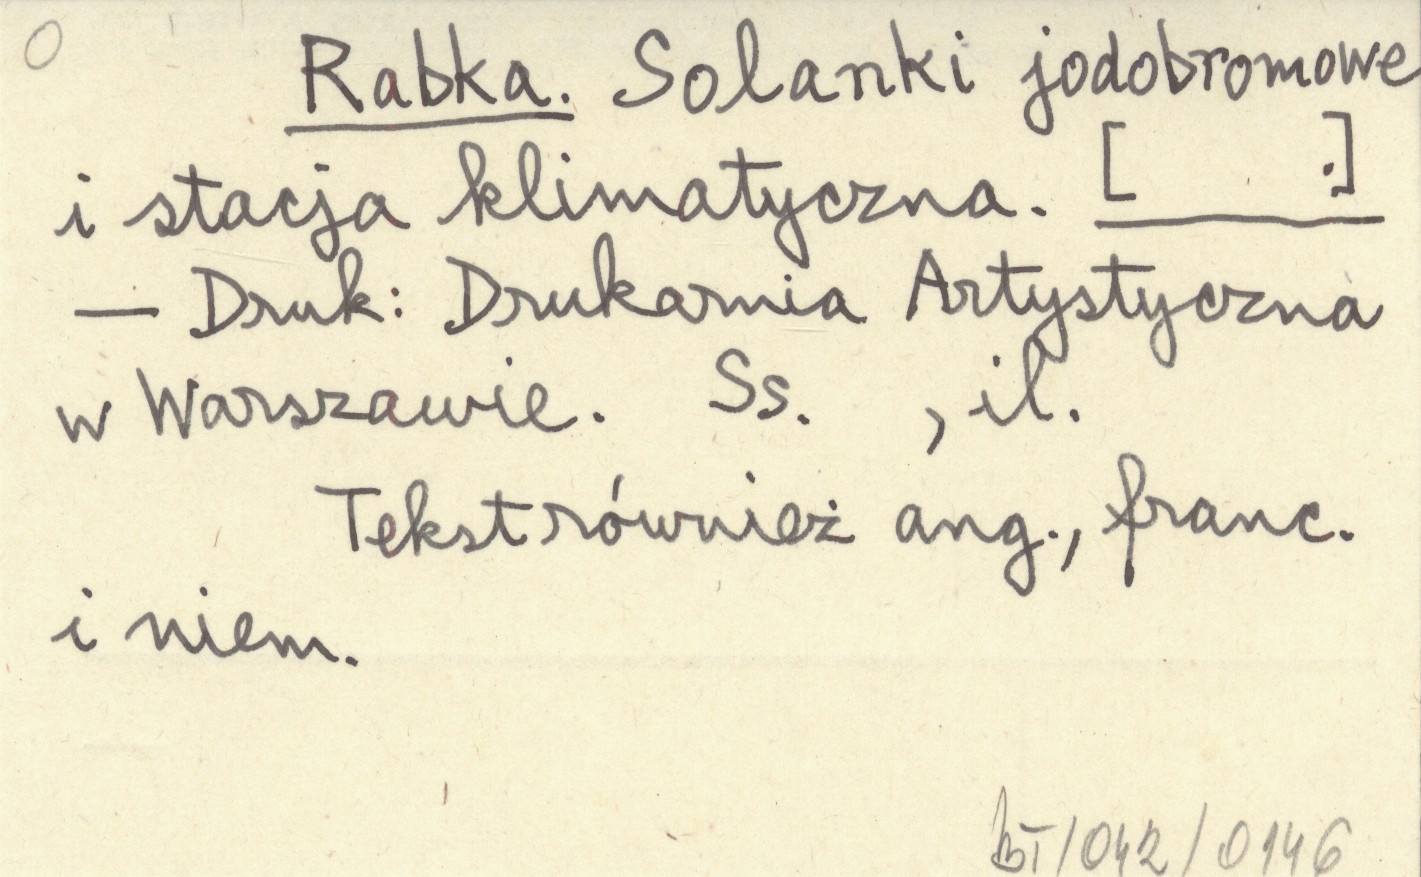 O
Rabka. Solanki jodobromowe
i stacja klimatyczna. [ .]
— Druk: Drukarnia Artystyczna
w Warszawie. Ss. , il.
Tekst również ang., franc.
i niem.
BT/042/0146